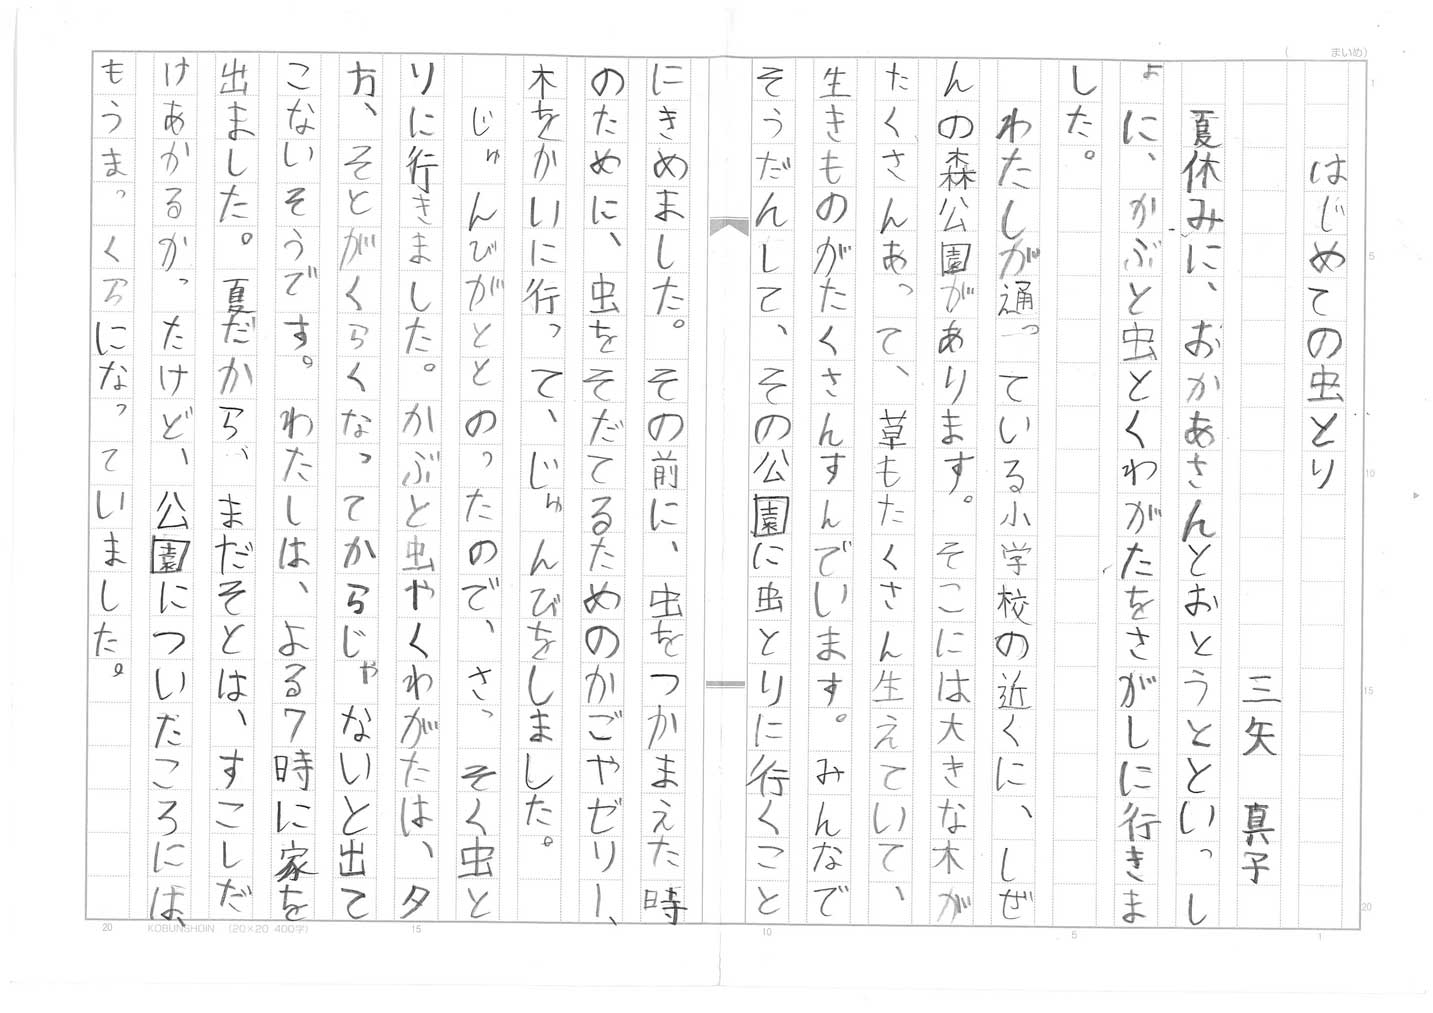 はじめての虫とり
三矢 真子
夏休みに、おかあさんとおとうとといっし
ょに、かぶと虫とくわがたをさがしに行きま
した。
わたしが通っている小学校の近くに、しぜ
んの森公園があります。そこには大きな木が
たくさんあって、草もたくさん生えていて、
生きものがたくさんすんでいます。みんなで
そうだんして、その公園に虫とりに行くこと
にきめました。その前に、虫をつかまえた時
のために、虫をそだてるためのかごやゼリー、
木をかいに行って、じゅんびをしました。
じゅんびがととのったので、さっそく虫と
りに行きました。かぶと虫やくわがたは、夕
方、そとがくらくなってからじゃないと出て
こないそうです。わたしは、よる7時に家を
出ました。夏だから、まだそとは、すこしだ
けあかるかったけど、公園についたころには、
もうまっくらになっていました。
(まいめ)
1
5
10
15
20
20
KOBUNSHOIN (20×20 400字)
15
10
5
1